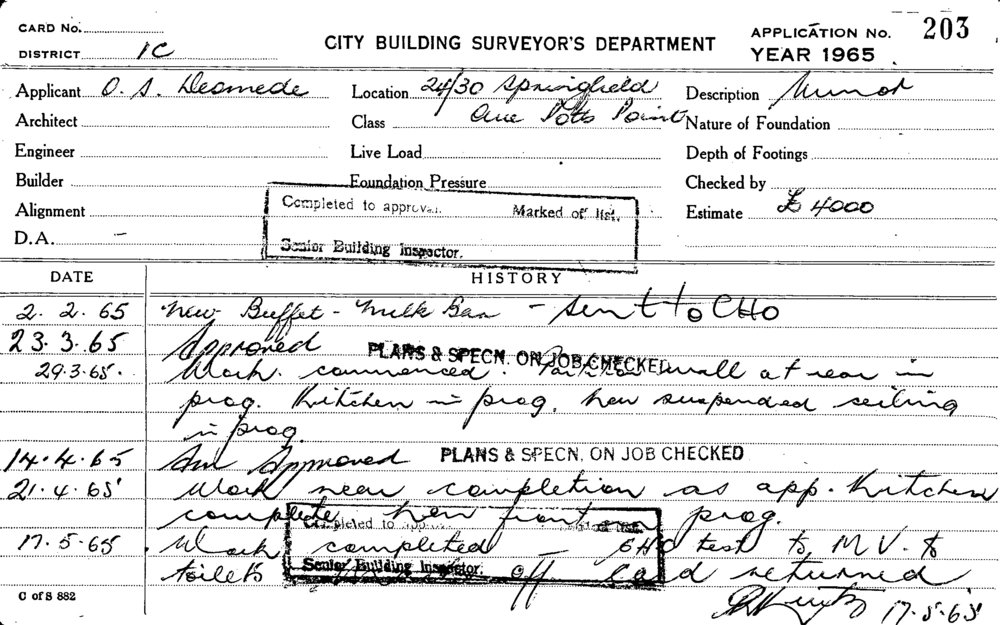 CARD No.
DISTRICT 1C
CITY BUILDING SURVEYOR'S DEPARTMENT
APPLICATION No. 203
YEAR 1965
Applicant O. S. Desmede Location 24/30 Springfield Description Minor
Architect Class Ave Potts Point Nature of Foundation
Engineer Live Load Depth of Footings
Builder Foundation Pressure Checked by
Alignment Estimate £ 4000
Completed to approval. Marked of list.
D.A. –
Senior Building Inspector.
DATE HISTORY
2. 2. 65 New Buffet - Milk Bar - Sent to CHO
23. 3. 65 Approved
PLANS & SPECN. ON JOB CHECKED
29.3.65. Work commenced. Partition wall at rear in
prog. Kitchen in prog, new suspended ceiling
in prog.
14. 4. 65 Am Approved PLANS & SPECN. ON JOB CHECKED
21. 4. 65 Work near completion as app. Kitchen
complete, new front in prog.
Completed to
17. 5. 65 Work completed – CHO test to M.V. to
toilets off card returned
Senior Building Inspector.
C of S 882
17.5.65